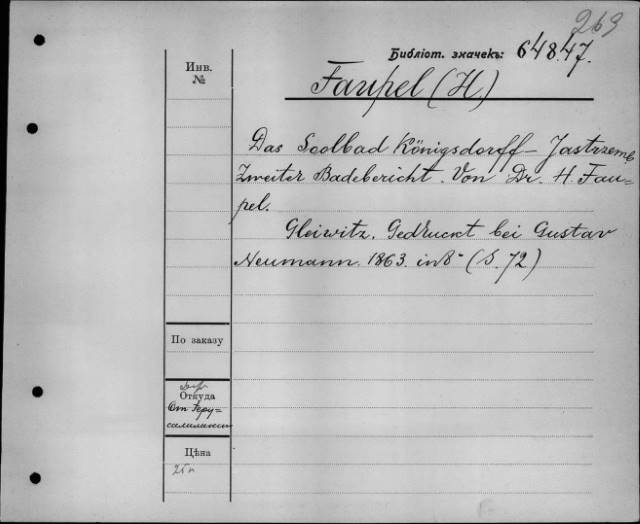 269
Библіот. значекъ: 64847.
Инв.
№
Faupel (H)
Das Soolbad Königsdorff-Jastrzemb
Zweiter Badebericht. Von Dr. H. Fau=
pel.
Gleiwitz. Gedruckt bei Gustav
Neumann. 1863. in 8° (S. 72)
По заказу
Откуда
От Iеру=
салимскаго
Цѣна
25к